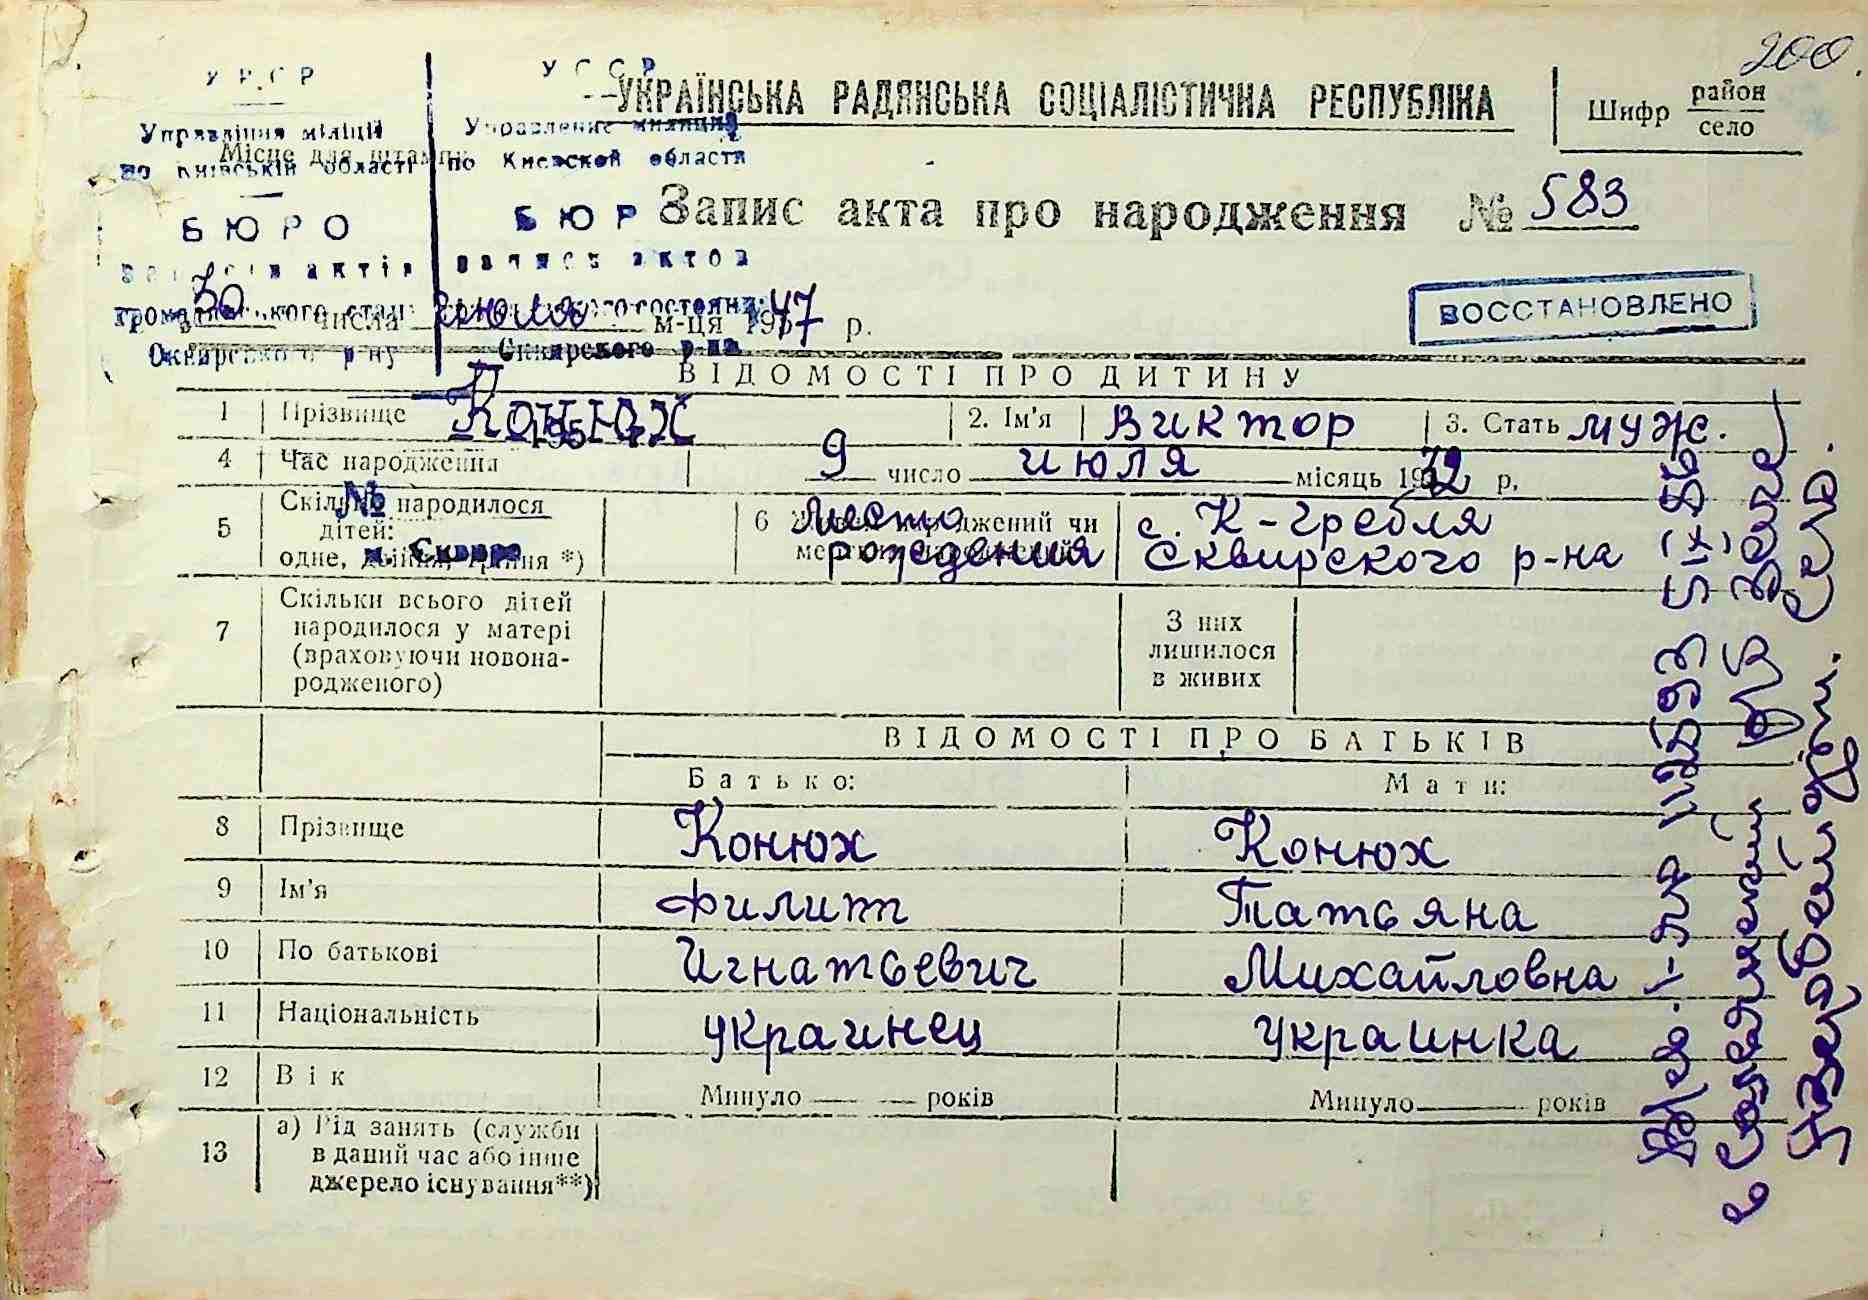 200.
УРСР
УССР
УКРАЇНСЬКА РАДЯНСЬКА СОЦІАЛІСТИЧНА РЕСПУБЛІКА
Шифр район
село
Управління міліції
Управление милиции
Місце для штампу
по Київській області
по Киевской области
Запис акта про народження № 583
БЮРО
БЮР
записів актів
записи актов
30 числа июля м-ця 1947 р.
Сквирского р-на
ВОССТАНОВЛЕНО
ВІДОМОСТІ ПРО ДИТИНУ
1 Прізвище Конюх 2. Ім'я Виктор 3. Стать муж.
4 Час народження 9 число июля місяць 19 р.
№
м. Сквира
5 Скільки народилося дітей: одне, двійня, трійня *)
6 место рождения с. К-Гребля Сквирского р-на
7 Скільки всього дітей народилося у матері (враховуючи новонародженого)
З них лишилося в живих
ВІДОМОСТІ ПРО БАТЬКІВ
Батько: Мати:
8 Прізвище Конюх Конюх
9 Ім'я Филипп Татьяна
10 По батькові Игнатьевич Михайловна
11 Національність украинец украинка
12 Вік Минуло років Минуло років
13 а) Рід занять (служби
в даний час або інше
джерело існування**)